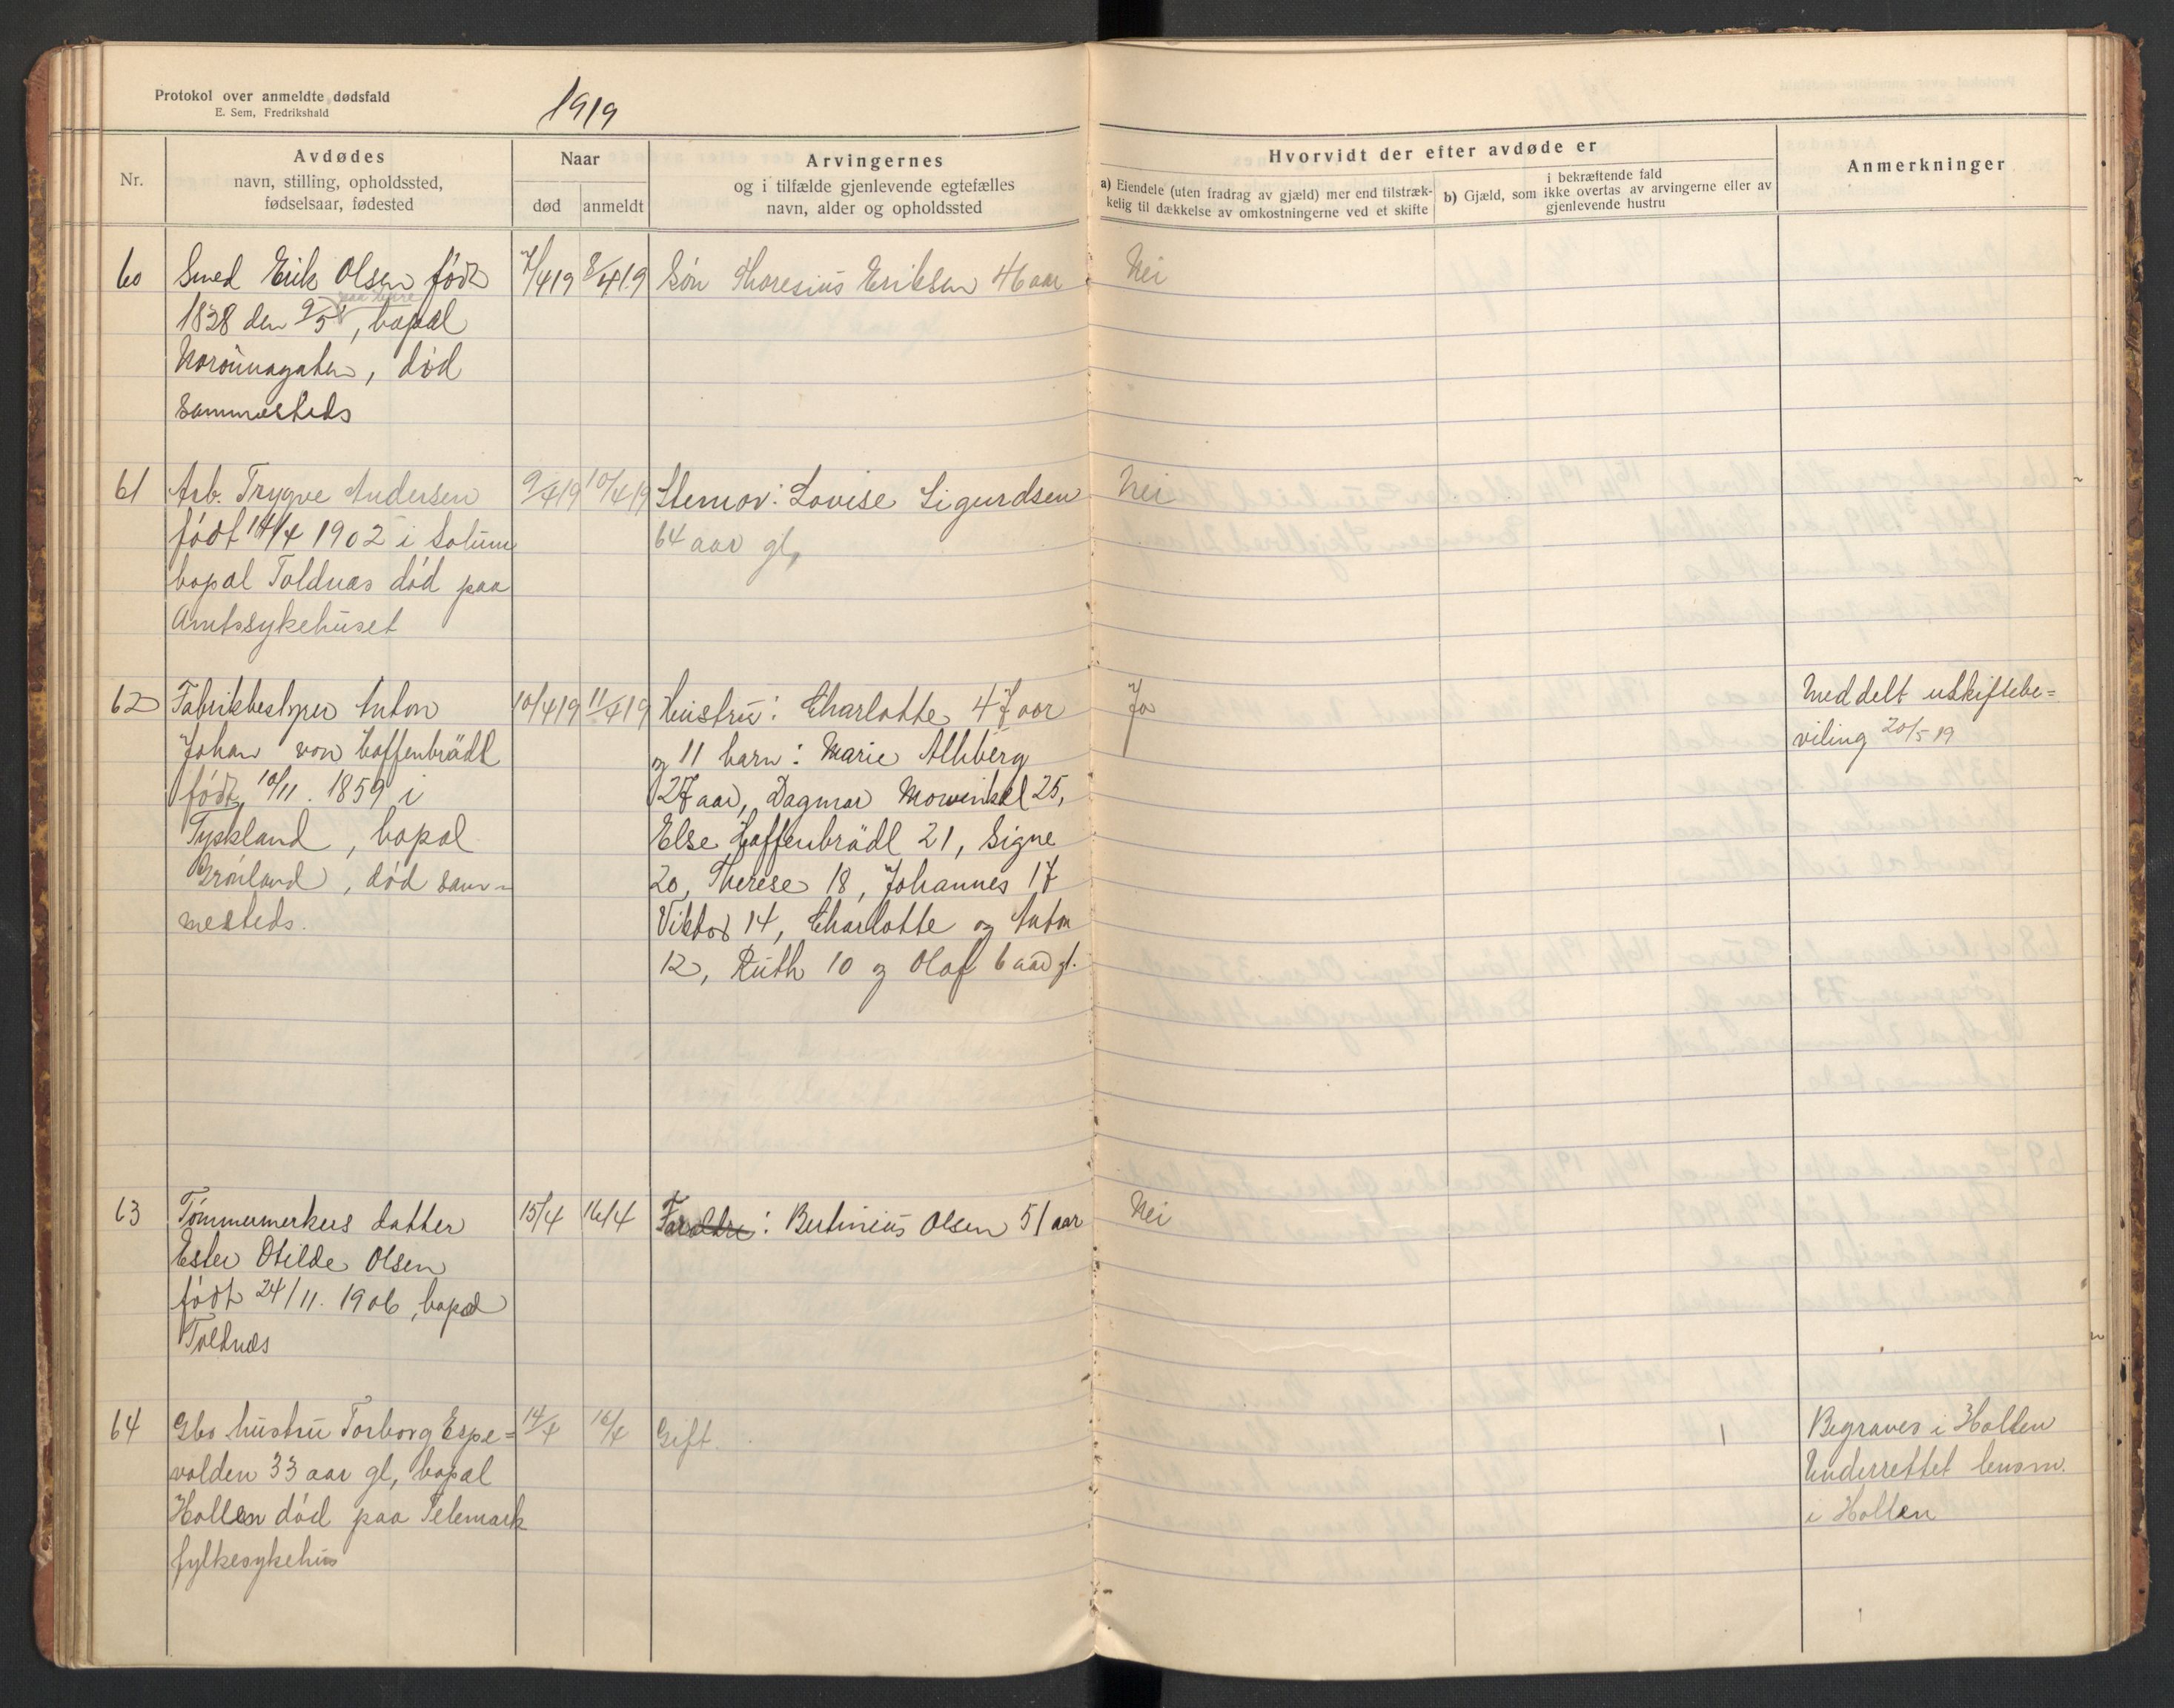 Protokol over anmeldte dødsfald
E. Sem, Fredrikshald
1919
Nr.
Avdødes
navn, stilling, opholdssted,
fødselsaar, fødested
Naar
død
anmeldt
Arvingernes
og i tilfælde gjenlevende egtefælles
navn, alder og opholdssted
Hvorvidt der efter avdøde er
a) Eiendele (uten fradrag av gjæld) mer end tilstræk-
kelig til dækkelse av omkostningerne ved et skifte
i bekræftende fald
b) Gjæld, som ikke overtas av arvingerne eller av
gjenlevende hustru
Anmerkninger
60
Smed Erik Olsen født
1838 den 9/5, bopæl
død
sammesteds
7/4 19
8/4 19
Søn Thoresius Eriksen 46 aar
Nei
61
Arb. Trygve Andersen
født 14/4 1902 i Solum
bopæl Toldnæs død paa
Amtssykehuset
9/4 19
10/4 19
Stemor: Lovise Sigurdsen
64 aar gl,
Nei
62
Fabrikbestyrer Anton
Johan von Hoffenbrädl
født 10/11. 1859 i
Tyskland, bopæl
Grønland, død sam-
mesteds.
10/4 19
11/4 19
Hustru: Charlotte 47 aar
og 11 barn: Marie Ahlberg
27 aar, Dagmar Mowinkel 25,
Else Hoffenbrädl 21, Signe
20, Therese 18, Johannes 17
Viktor 14, Charlotte og Anton
12, Ruth 10 og Olaf 6 aar gl.
Ja
Meddelt uskiftebe=
viling 20/5 19
63
Tømmermerkers datter
Ester Otilde Olsen
født 24/11. 1906, bopæl
Toldnæs
15/4
16/4
Forældre: Bertinius Olsen 51 aar
Nei
64
Gbr hustru Torborg Espe=
volden 33 aar gl, bopæl
Hollen død paa Telemark
fylkesykehus
14/4
16/4
Gift.
Begraves i Hollen
Underrettet lensm.
i Hollen